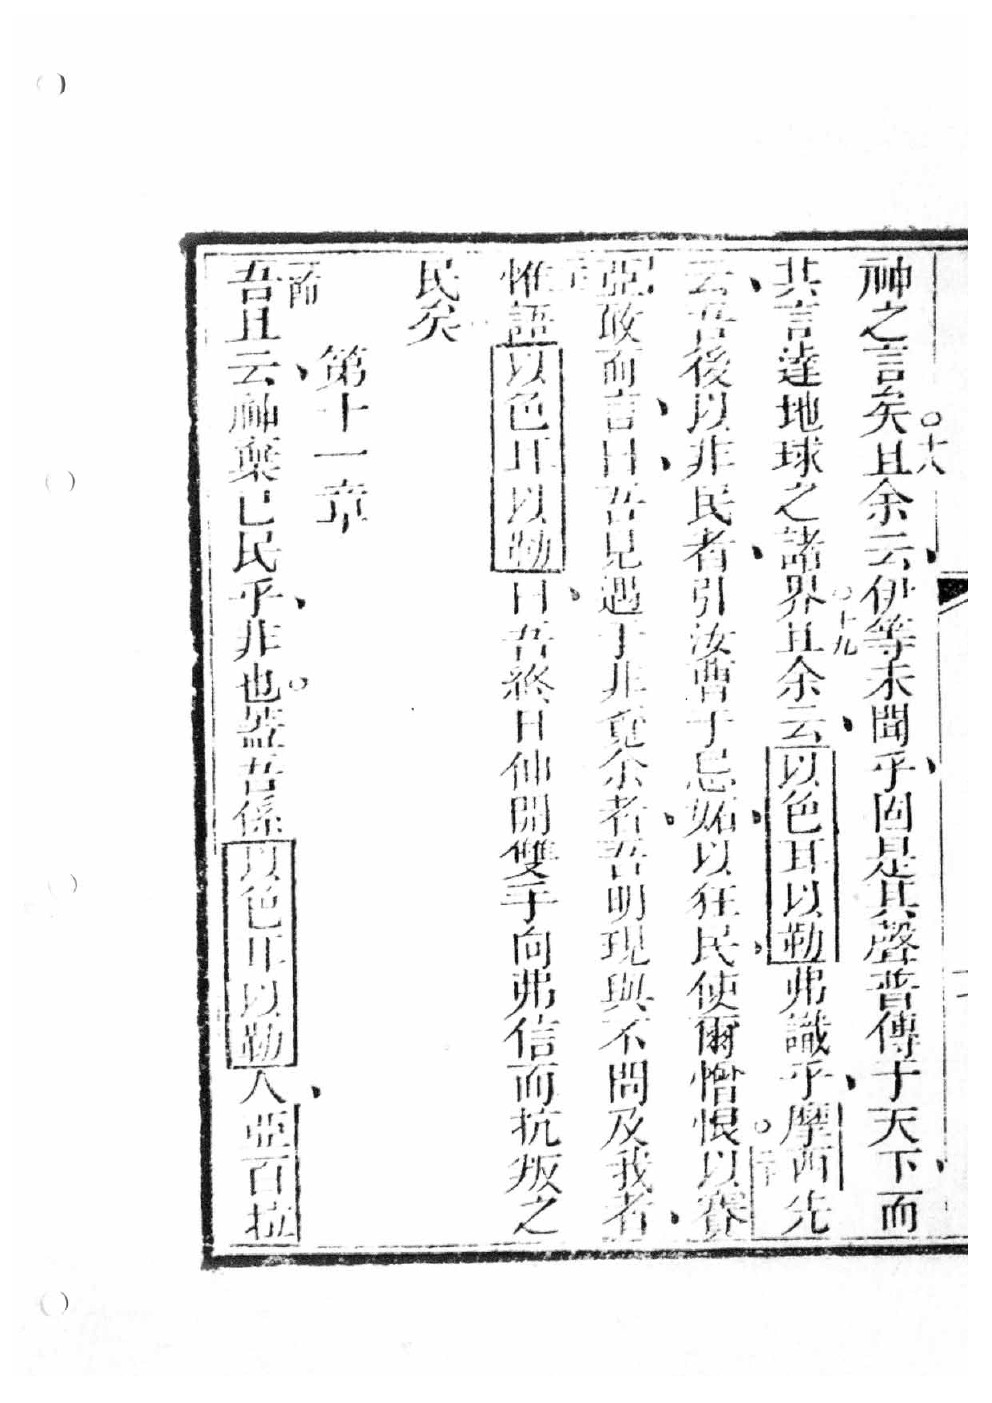 神之言矣○十八且余云伊等未聞乎固是其聲普傳于天下而
其言達地球之諸界○十九且余云以色耳以勒弗識乎摩西先
云吾後以非民者引汝曹于忌妬以狂民使爾憎恨○二十以賽
亞攷而言曰吾見遇于非覓余者吾明現與不問及我者
惟語以色耳以勒曰吾終日伸開雙手向弗信而抗叛之
民矣
第十一章
一節吾且云神棄已民乎非也蓋吾係以色耳以勒人亞百拉